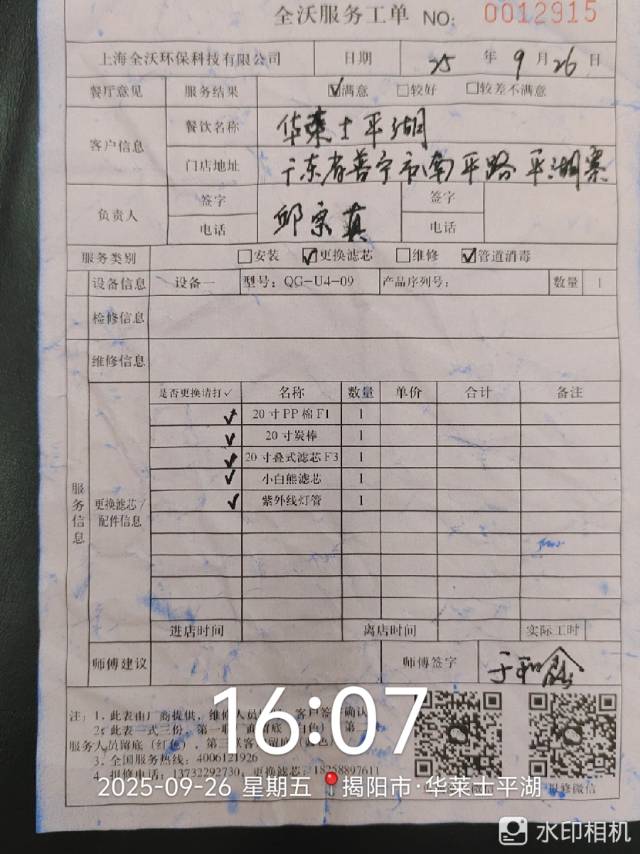 全沃服务工单 NO: 0012915
上海全沃环保科技有限公司 日期 25 年 9 月 26 日
餐厅意见 服务结果 ☑满意 □较好 □较差不满意
客户信息 餐饮名称 华莱士平湖
门店地址 广东省普宁市南平路平湖寨
负责人 签字 邱宗真 签字
电话 电话
服务类别 □安装 ☑更换滤芯 □维修 ☑管道消毒
设备信息 设备一 型号：QG-U4-09 产品序列号： 数量 1
检修信息
维修信息
服务信息
更换滤芯/配件信息
是否更换请打✓ 名称 数量 单价 合计 备注
✓ 20寸PP棉F1 1
✓ 20寸炭棒 1
✓ 20寸叠式滤芯F3 1
✓ 小白熊滤芯 1
✓ 紫外线灯管 1
进店时间 离店时间 实际工时
师傅建议 师傅签字
注：1，此表由厂商提供，维修人员
2：此表一式三份，第一联
服务人员留底（红色），第二联客
3、全国服务热线：4006121926
4、报修电话：13732292730，更换滤芯：18258897611
报修微信
16:07
2025-09-26 星期五 揭阳市·华莱士平湖
水印相机